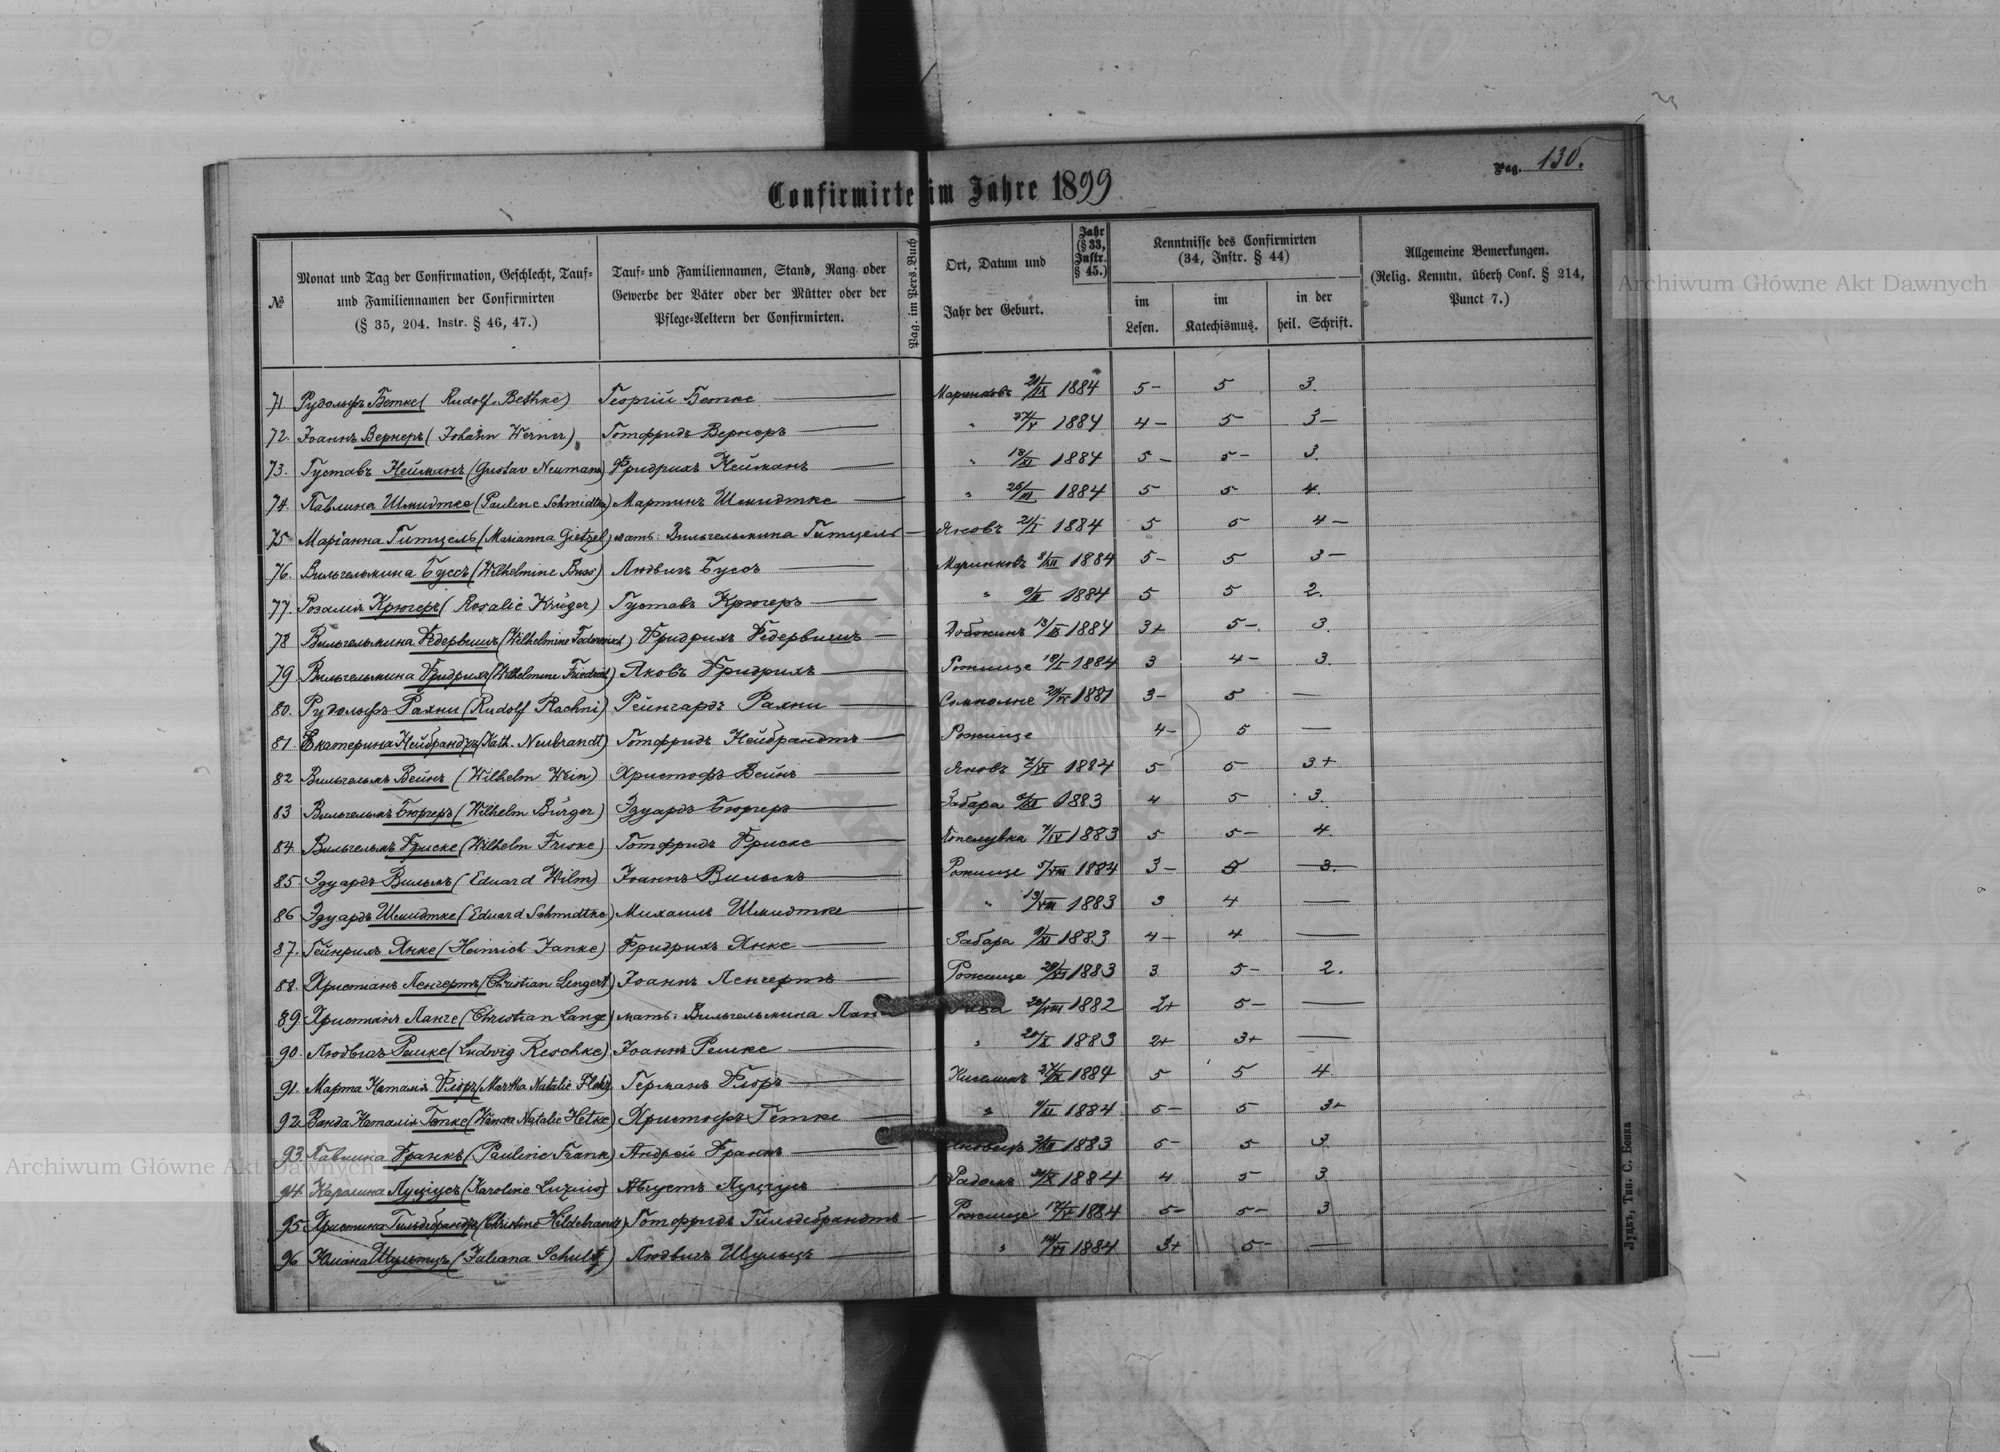 Pag. 130.
Confirmirte im Jahre 1899
№
Monat und Tag der Confirmation, Geschlecht, Tauf-
und Familiennamen der Confirmirten
(§ 35, 204. Instr. § 46, 47.)
Tauf- und Familiennamen, Stand, Rang oder
Gewerbe der Väter oder der Mütter oder der
Pflege-Aeltern der Confirmirten.
Pag. im Pers. Buch
Ort, Datum und
Jahr der Geburt.
Jahr
(§ 33,
Instr.
§ 45.)
Kenntnisse des Confirmirten
(34, Instr. § 44)
im
Lesen.
im
Katechismus.
in der
heil. Schrift.
Allgemeine Bemerkungen.
(Relig. Kenntn. überh Conf. § 214,
Punct 7.)
71 Рудольфъ Бетке (Rudolf Bethke) Георгій Бетке Маринковъ 1884 5- 5 3.
72. Іоаннъ Вернеръ (Johann Werner) Готфридъ Вернеръ " 1884 4- 5 3-
73. Густавъ Нейманъ (Gustav Neumann) Фридрихъ Нейманъ " 13/XI 1884 5- 5- 3.
74. Павлина Шмидтке (Pauline Schmidtke) Мартинъ Шмидтке " 25/III 1884 5 5 4.
75 Маріанна Гитцель (Marianna Gietzel) мать: Вильгельмина Гитцель Яновъ 21/I 1884 5 5 4-
76. Вильгельмина Буссъ (Wilhelmine Buss) Людвигъ Буссъ Маринковъ 1884 5- 5 3-
77. Розалія Крюгеръ (Rosalie Krüger) Густавъ Крюгеръ " 1884 5 5 2.
78 Вильгельмина Федервишъ (Wilhelmine) Фридрихъ Федервишъ 1884 3+ 5-. 3.
79 Вильгельмина Фридрихъ (Wilhelmine Friedrich) Яковъ Фридрихъ Рожище 18/I 1884 3 4- 3.
80. Рудольфъ Рахни (Rudolf Rachni) Рейнгардъ Рахни 1881 3- 5 —
81. Екатерина Нейбрандтъ (Kath. Neubrandt) Готфридъ Нейбрандтъ Рожище 4- 5 —
82 Вильгельмъ Вейнъ (Wilhelm Wein) Христофъ Вейнъ Яновъ 1884 5 5 3+
83 Вильгельмъ Бюргеръ (Wilhelm Bürger) Эдуардъ Бюргеръ Забара 1883 4 5 3.
84. Вильгельмъ Фриске (Wilhelm Friske) Готфридъ Фриске Копелувка 7/IV 1883 5 5- 4.
85. Эдуардъ Вильмъ (Eduard Wilm) Іоаннъ Вильмъ Рожище 5/VIII 1884 3- 5 3.
86 Эдуардъ Шмидтке (Eduard Schmidtke) Михаилъ Шмидтке " 19/VIII 1883 3 4 —
87. Гейнрихъ Янке (Heinrich Janke) Фридрихъ Янке Забара 1883 4- 4 —
88. Христіанъ Ленгертъ (Christian Lengert) Іоаннъ Ленгертъ Рожище 1883 3 5- 2.
89 Христіанъ Ланге (Christian Lange) мать: Вильгельмина Лан 1882 2+ 5- —
90. Людвигъ Решке (Ludwig Reschke) Іоаннъ Решке " 20/X 1883 2+ 3+ —
91. Марта Наталія Флоръ (Martha Natalie) Германъ Флоръ Киселинъ 1884 5 5 4
92 Ванда Наталія Гетке (Wanda Natalie Hetke) Христофъ Гетке " 1884 5- 5 3+
93. Павлина Франкъ (Pauline Frank) Андрей Франкъ 1883 5- 5 3
94. Каролина Луціусъ (Karoline Luzius) Августъ Луціусъ Радомъ 1884 4 5 3
95. Христина Гильдебрандтъ (Christine Hildebrandt) Готфридъ Гильдебрандтъ Рожище 1884 5- 5- 3
96 Юліана Шультцъ (Juliana Schultz) Людвигъ Шульцъ " 1884 3+ 5- —
Луцкъ, Тип. С. Бонка
Archiwum Główne Akt Dawnych
Archiwum Główne Akt Dawnych